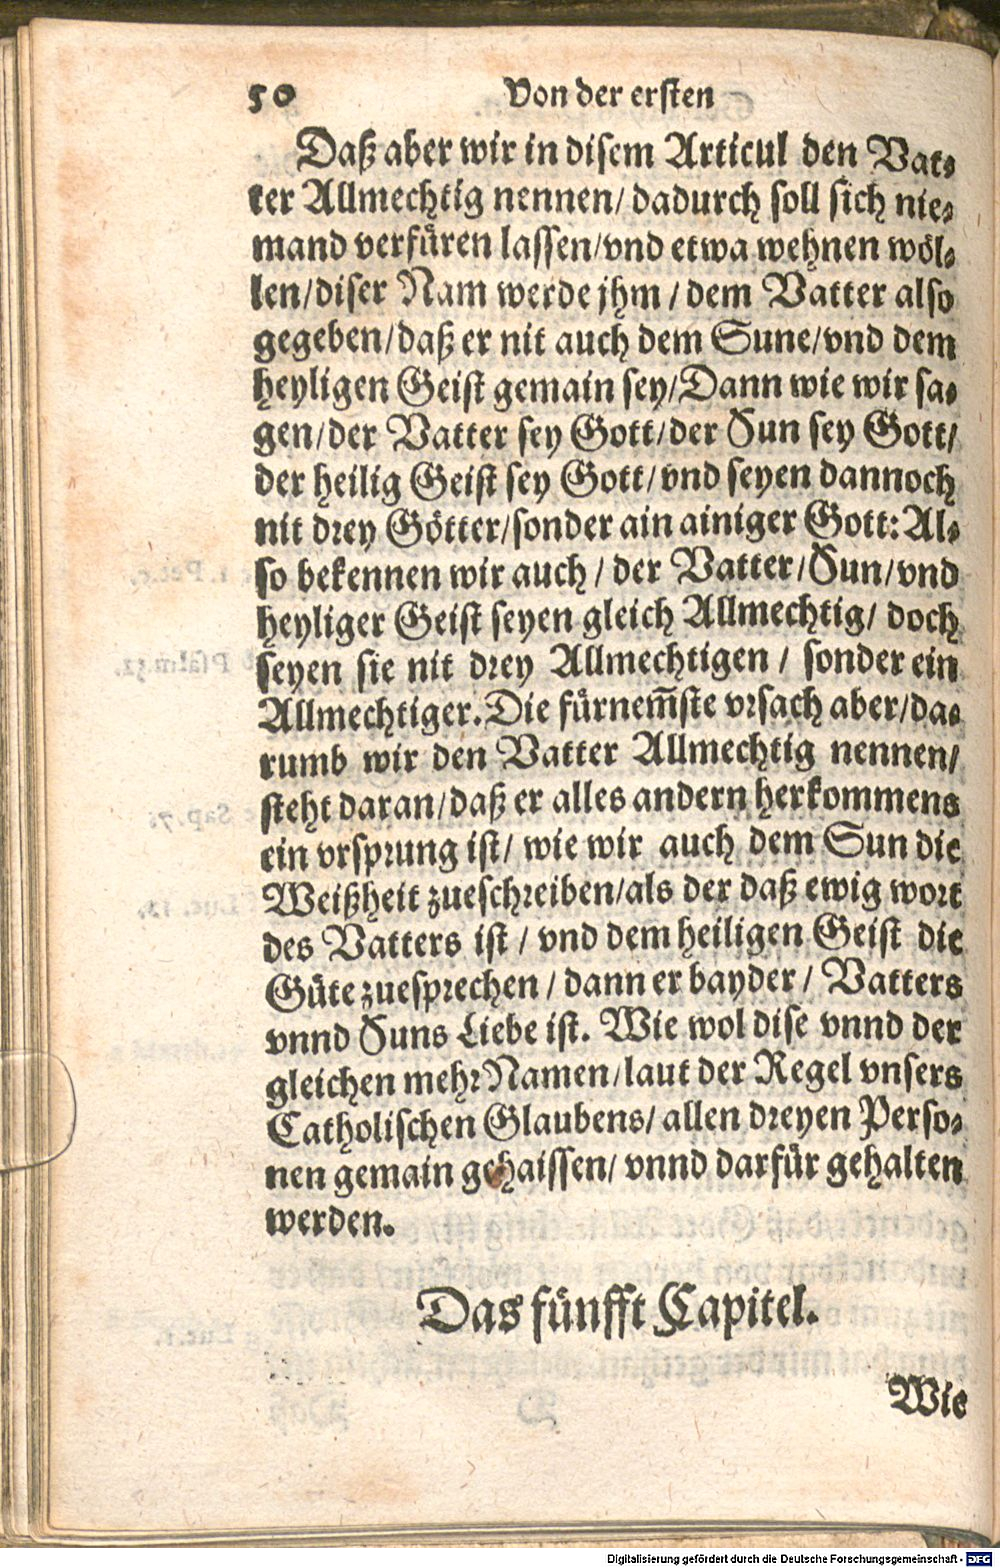 50 Von der ersten
Daß aber wir in disem Articul den Vat-
ter Allmechtig nennen/ dadurch soll sich nie-
mand verfüren lassen/vnd etwa wehnen wöl-
len/diser Nam werde jhm / dem Vatter also
gegeben/daß er nit auch dem Sune/vnd dem
heyligen Geist gemain sey/Dann wie wir sa-
gen/der Vatter sey Gott/der Sun sey Gott/
der heilig Geist sey Gott/vnd seyen dannoch
nit drey Götter/sonder ain ainiger Gott: Al-
so bekennen wir auch / der Vatter/Sun/vnd
heyliger Geist seyen gleich Allmechtig/ doch
seyen sie nit drey Allmechtigen / sonder ein
Allmechtiger. Die fürnem̃ste vrsach aber/da-
rumb wir den Vatter Allmechtig nennen/
steht daran/daß er alles andern herkommens
ein vrsprung ist/ wie wir auch dem Sun die
Weißheit zueschreiben/als der daß ewig wort
des Vatters ist / vnd dem heiligen Geist die
Güte zuesprechen / dann er bayder / Vatters
vnnd Suns Liebe ist. Wie wol dise vnnd der
gleichen mehr Namen/laut der Regel vnsers
Catholischen Glaubens/ allen dreyen Perso-
nen gemain gehaissen/ vnnd darfür gehalten
werden.
Das fünfft Capitel.
Wie
Digitalisierung gefördert durch die Deutsche Forschungsgemeinschaft - DFG